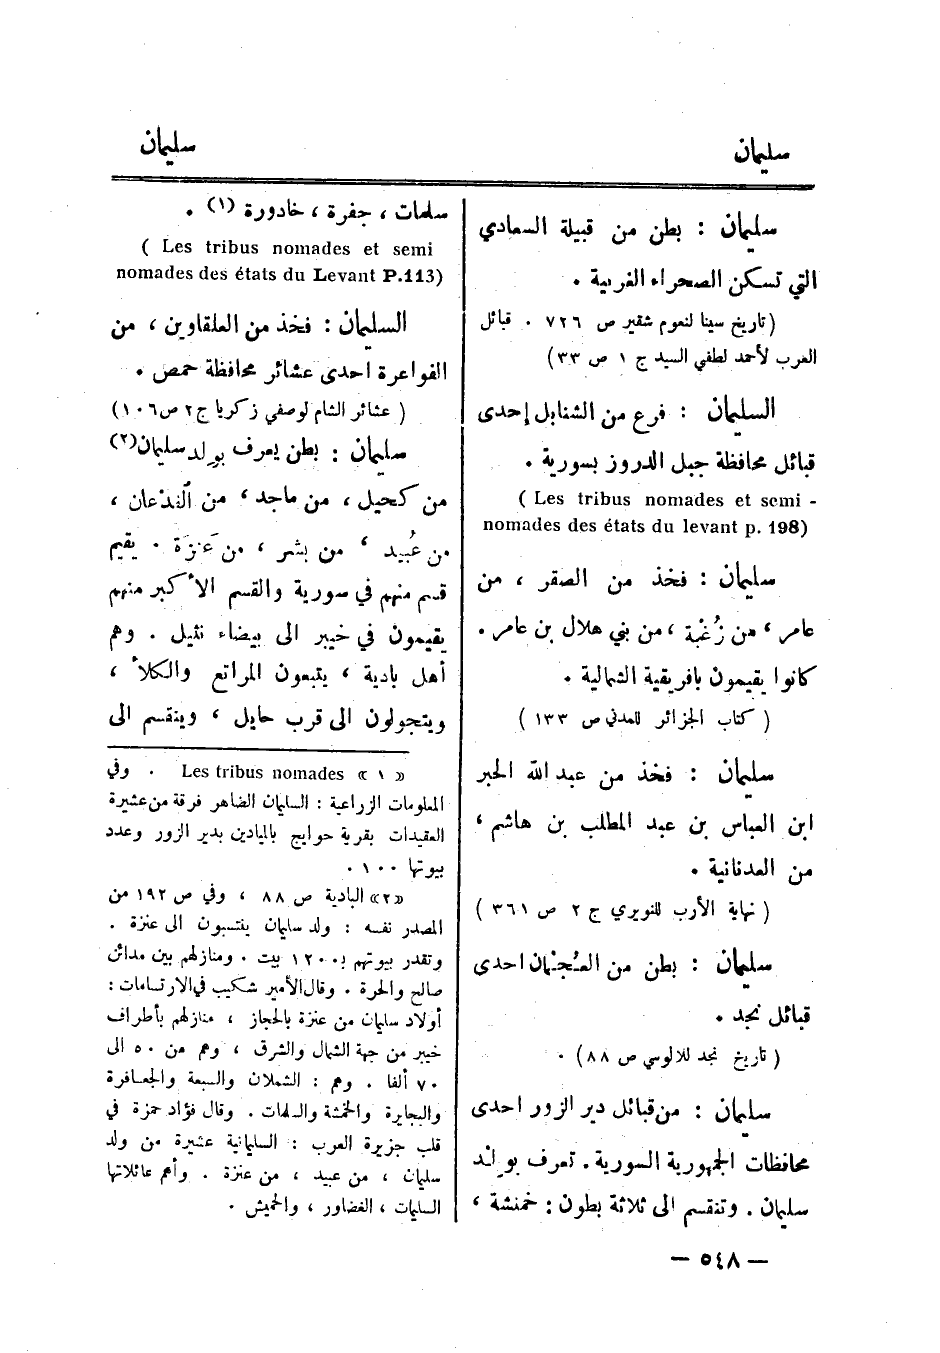 سليمان
سليمان
سليمان : بطن من قبيلة السعادي
التي تسكن الصحراء الغربية .
(تاريخ سينا لنعوم شقير ص ٧٢٦ . قبائل
العرب لأحمد لطفي السيد ج ١ ص ٣٣)
السليمان : فرع من الشنابل إحدى
قبائل محافظة جبل الدروز بسورية .
( Les tribus nomades et semi -
nomades des états du levant p. 198)
سليمان : فخذ من الصقر ، من
عامر ، من زُغبة ، من بني هلال بن عامر .
كانوا يقيمون بافريقية الشمالية .
( كتاب الجزائر للمدني ص ١٣٣ )
سليمان : فخذ من عبد الله الحبر
ابن العباس بن عبد المطلب بن هاشم ،
من العدنانية .
( نهاية الأرب للنويري ج ٢ ص ٣٦١ )
سليمان : بطن من العُجْمان احدى
قبائل نجد .
( تاريخ نجد للالوسي ص ٨٨) .
سليمان : من قبائل دير الزور احدى
محافظات الجمهورية السورية . تعرف بولد
سليمان . وتنقسم الى ثلاثة بطون : خمنشة ،
سلمات ، جفرة ، خادورة (١) .
( Les tribus nomades et semi
nomades des états du Levant P.113)
السليمان : فخذ من العلقاوين ، من
الفواعرة احدى عشائر محافظة حمص .
( عشائر الشام لوصفي زكريا ج٢ ص١٠٦)
سليمان : بطن يعرف بولد سليمان(٢)
من كحيل ، من ماجد ، من الفَدْعان ،
من عُبيد ، من بشر ، من عَنَزَة . يقيم
قسم منهم في سورية والقسم الأكبر منهم
يقيمون في خيبر الى بيضاء نثيل . وهم
أهل بادية ، يتبعون المراتع والكلأ ،
ويتجولون الى قرب حايل ، وينقسم الى
«١» Les tribus nomades . وفي
المعلومات الزراعية : السليمان الضاهر فرقة من عشيرة
العقيدات بقرية حوايج بالميادين بدير الزور وعدد
بيوتها ١٠٠ .
«٢» البادية ص ٨٨ ، وفي ص ١٩٢ من
المصدر نفسه : ولد سليمان ينتسبون الى عنزة .
وتقدر بيوتهم ب١٢٠٠ بيت . ومنازلهم بين مدائن
صالح والحرة . وقال الأمير شكيب في الارتسامات :
أولاد سليمان من عنزة بالحجاز ، منازلهم بأطراف
خيبر من جهة الشمال والشرق ، وهم من ٥٠ الى
٧٠ ألفا . وهم : الشملان والسبعة والجعافرة
والبجايرة والخمشة والسلمات . وقال فؤاد حمزة في
قلب جزيرة العرب : السليمانية عشيرة من ولد
سليمان ، من عبيد ، من عنزة . وأهم عائلاتها
السليمات ، الغضاور ، والخميش .
— ٥٤٨ —